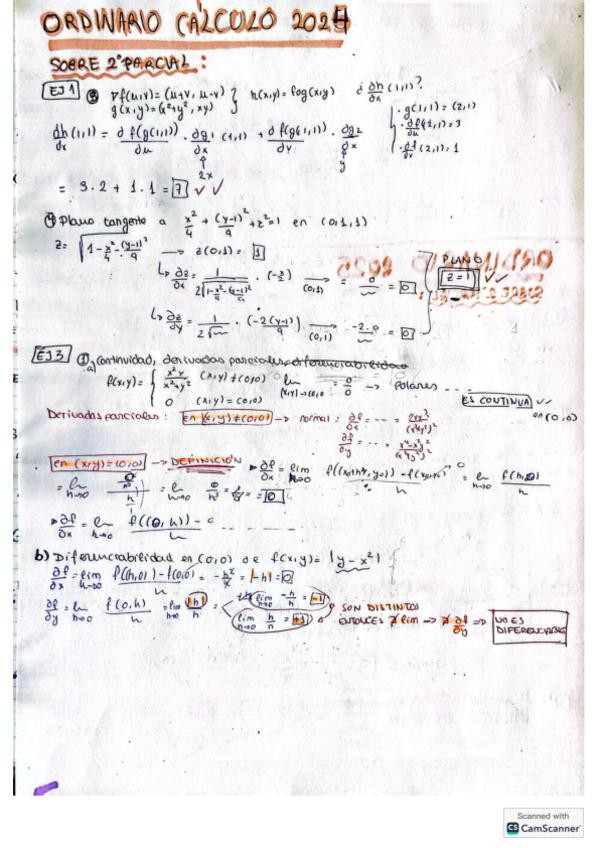 ORDINARIO CÁLCULO 2024
SOBRE 2º PARCIAL:
EJ 1 ③ ∇f(u,v) = (u+v, u-v) } h(x,y) = f∘g(x,y) ¿ ∂h/∂x (1,1)?
g(x,y) = (x²+y², xy)
∂h/∂x (1,1) = ∂f(g(1,1))/∂u · ∂g1/∂x (1,1) + ∂f(g(1,1))/∂v · ∂g2/∂x
· g(1,1) = (2,1)
· ∂f/∂u (2,1) = 3
· ∂f/∂v (2,1) = 1
2x
y
= 3·2 + 1·1 = 7 ✓✓
④ Plano tangente a x²/4 + (y-1)²/9 + z² = 1 en (0,1,1)
z = √(1 - x²/4 - (y-1)²/9) → z(0,1) = 1
PLANO
z = 1 ✓✓
↳ ∂z/∂x = 1/(2√(1-x²/4-(y-1)²/9)) · (-x/2) → (0,1) = 0 = 0
↳ ∂z/∂y = 1/(2√) · (-2(y-1)/9) → (0,1) -2·0 = 0
EJ 3 ① a) continuidad, derivadas parciales, diferenciabilidad
f(x,y) = { x²y/(x²+y²) (x,y) ≠ (0,0)
0 (x,y) = (0,0)
lim (x,y)→(0,0) = 0/0 → Polares ...
ES CONTINUA ✓✓ en (0,0)
Derivadas parciales: en (x,y) ≠ (0,0) → normal: ∂f/∂x = ... = 2xy³/(x²+y²)²
∂f/∂y = ...
en (x,y) = (0,0) → DEFINICIÓN
∂f/∂x = lim h→0 = lim h→0 f(h,0)/h
= lim h→0 = lim h→0 = 0
∂f/∂x = lim h→0 f((0,h)) - 0 / h
b) Diferenciabilidad en (0,0) de f(x,y) = |y - x²|
∂f/∂x = lim h→0 f(h,0) - f(0,0) / h = -h²/h = |-h| = 0
∂f/∂y = lim h→0 f(0,h)/h = lim h→0 |h|/h = lim h→0 -h/h = -1
lim h→0 h/h = +1
SON DISTINTOS
ENTONCES ∄ lim → ∄ ∂f/∂y ⇒ NO ES DIFERENCIABLE
Scanned with
CS CamScanner